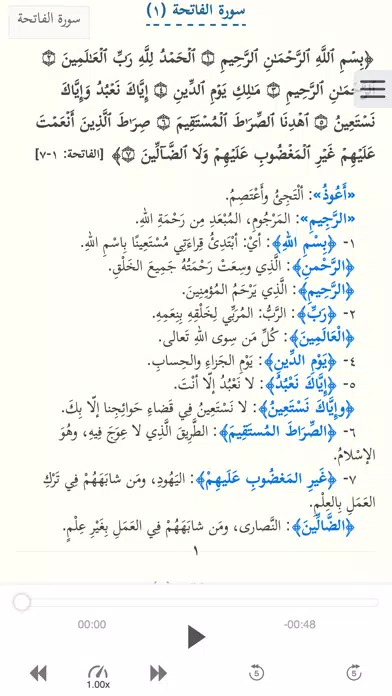 سورة الفاتحة (١)
سورة الفاتحة
﴿بِسْمِ ٱللَّهِ ٱلرَّحْمَـٰنِ ٱلرَّحِيمِ ۝١ ٱلْحَمْدُ لِلَّهِ رَبِّ ٱلْعَـٰلَمِينَ ۝٢
ٱلرَّحْمَـٰنِ ٱلرَّحِيمِ ۝٣ مَـٰلِكِ يَوْمِ ٱلدِّينِ ۝٤ إِيَّاكَ نَعْبُدُ وَإِيَّاكَ
نَسْتَعِينُ ۝٥ ٱهْدِنَا ٱلصِّرَٰطَ ٱلْمُسْتَقِيمَ ۝٦ صِرَٰطَ ٱلَّذِينَ أَنْعَمْتَ
عَلَيْهِمْ غَيْرِ ٱلْمَغْضُوبِ عَلَيْهِمْ وَلَا ٱلضَّآلِّينَ ۝٧﴾ [الفاتحة: ١-٧]
«أَعُوذُ»: أَلْتَجِئُ وأَعْتَصِمُ.
«الرَّجِيمِ»: المَرْجُومِ، المُبْعَدِ مِن رَحْمَةِ اللهِ.
١- ﴿بِسْمِ اللهِ﴾: أيْ: أبْتَدِئُ قِراءَتِي مُسْتَعِينًا بِاسْمِ اللهِ.
﴿الرَّحْمنِ﴾: الَّذِي وسِعَتْ رَحْمَتُهُ جَمِيعَ الخَلْقِ.
﴿الرَّحِيمِ﴾: الَّذِي يَرْحَمُ المُؤْمِنِينَ.
٢- ﴿رَبِّ﴾: الرَّبُّ: المُرَبِّي لِخَلْقِهِ بِنِعَمِهِ.
﴿الْعَالَمِينَ﴾: كُلِّ مَن سِوى اللهِ تَعالى.
٤- ﴿يَوْمِ الدِّينِ﴾: يَوْمِ الجَزاءِ والحِسابِ.
٥- ﴿إِيَّاكَ نَعْبُدُ﴾: لا نَعْبُدُ إلّا أنْتَ.
﴿وإِيَّاكَ نَسْتَعِينُ﴾: لا نَسْتَعِينُ فِي قَضاءِ حَوائِجِنا إلّا بِكَ.
٦- ﴿الصِّرَاطَ المُسْتَقِيمَ﴾: الطَّرِيقَ الَّذِي لا عِوَجَ فِيهِ، وهُوَ
الإسْلامُ.
٧- ﴿غَيْرِ المَغْضُوبِ عَلَيْهِمْ﴾: اليَهُودِ، ومَن شابَهَهُمْ فِي تَرْكِ
العَمَلِ بِالعِلْمِ.
﴿الضَّالِّينَ﴾: النَّصارى، ومَن شابَهَهُمْ فِي العَمَلِ بِغَيْرِ عِلْمٍ.
١
00:00
-00:48
1.00x
5
5